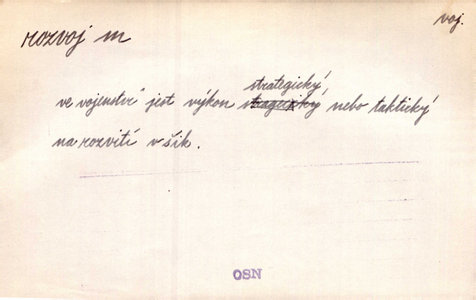 voj.
rozvoj m
strategický
ve vojenstvě jest výkon nebo taktický
na rozvití v šik.
OSN